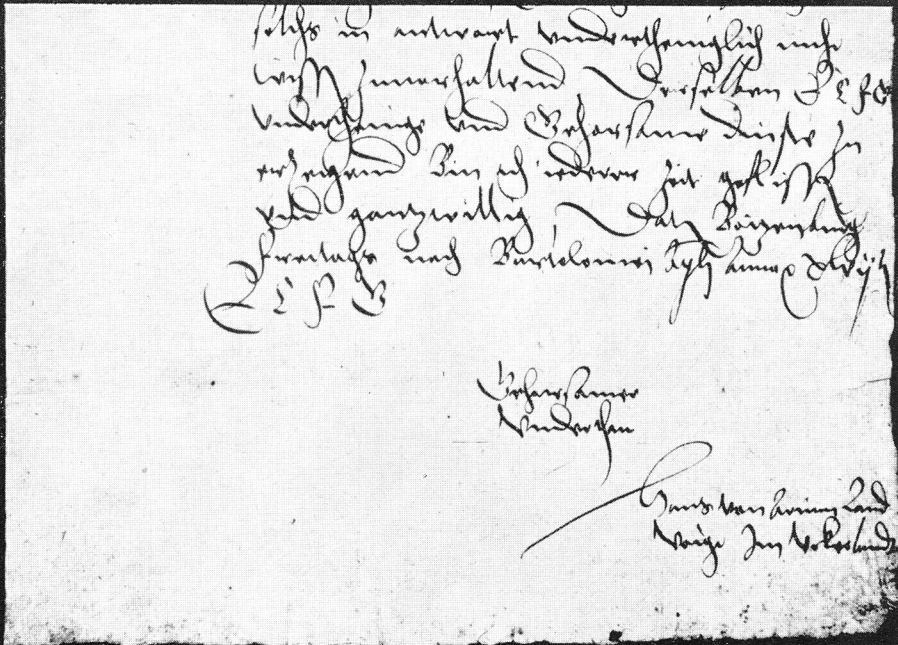 solchs in antwort vndertheniglich nicht
wiss Innerhalltend, Derselben E C F G
vnderthenige vnd Gehorsame dinste In
ertzeigend Bin ich ieder Zeit geflissen
vnd gantzwillig, Dat Boitzenburg
freitags nach Bartolomei Apli Anno xlvij
E C F G
Gehorsamer
Vnderthan
Hans von Arnim Land
Voigt Im Vckerlandt